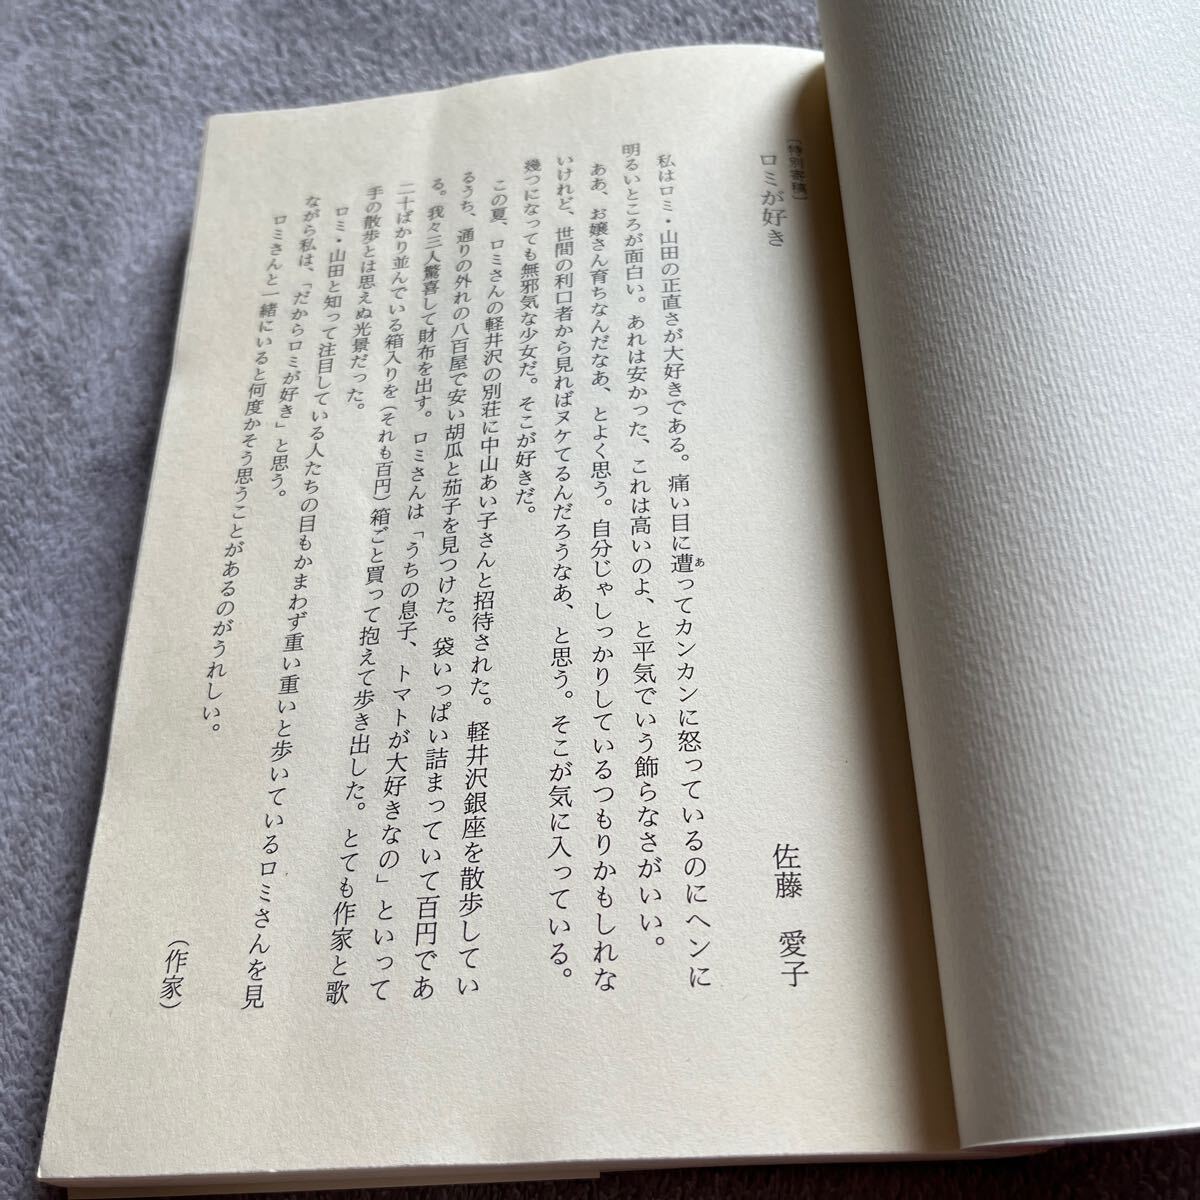 〔特別寄稿〕
ロミが好き
佐藤 愛子
私はロミ・山田の正直さが大好きである。痛い目に遭ってカンカンに怒っているのにヘンに
明るいところが面白い。あれは安かった、これは高いのよ、と平気でいう飾らなさがいい。
ああ、お嬢さん育ちなんだなあ、とよく思う。自分じゃしっかりしているつもりかもしれな
いけれど、世間の利口者から見ればヌケてるんだろうなあ、と思う。そこが気に入っている。
幾つになっても無邪気な少女だ。そこが好きだ。
この夏、ロミさんの軽井沢の別荘に中山あい子さんと招待された。軽井沢銀座を散歩してい
るうち、通りの外れの八百屋で安い胡瓜と茄子を見つけた。袋いっぱい詰まっていて百円であ
る。我々三人驚喜して財布を出す。ロミさんは「うちの息子、トマトが大好きなの」といって
二十ばかり並んでいる箱入りを(それも百円)箱ごと買って抱えて歩き出した。とても作家と歌
手の散歩とは思えぬ光景だった。
ロミ・山田と知って注目している人たちの目もかまわず重い重いと歩いているロミさんを見
ながら私は、「だからロミが好き」と思う。
ロミさんと一緒にいると何度かそう思うことがあるのがうれしい。
(作家)